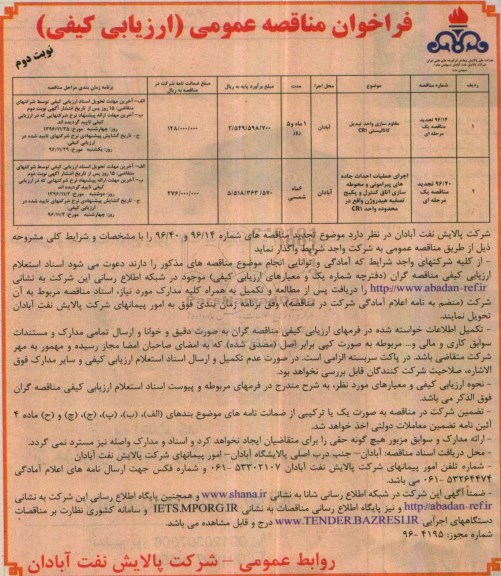 فراخوان مناقصه عمومی (ارزیابی کیفی)
نوبت دوم
ردیف
شماره مناقصه
موضوع
محل اجرا
مدت
مبلغ برآورد پایه به ریال
مبلغ ضمانت نامه شرکت در مناقصه به ریال
برنامه زمان بندی مراحل مناقصه
۱
۹۶/۱۴ تجدید مناقصه یک مرحله ای
مقاوم سازی واحد تبدیل کاتالیستی CR1
آبادان
۱ ماه و۵ روز
۲/۵۴۹/۵۹۸/۷۰۰
۱۲۸/۰۰۰/۰۰۰
الف- آخرین مهلت تحویل اسناد ارزیابی کیفی توسط شرکتهای متقاضی: ۱۵ روز پس از تاریخ انتشار آگهی نوبت دوم
ب- آخرین مهلت ارائه پیشنهاد نرخ شرکتهایی که در ارزیابی کیفی تایید گردیده اند
روز: چهارشنبه مورخ: ۱۳۹۶/۱۲/۲۵
ج- تاریخ گشایش پیشنهادی نرخ شرکتهای تایید شده در ارزیابی کیفی.
روز: یکشنبه مورخ:
۲
۹۶/۴۰ تجدید مناقصه یک مرحله ای
اجرای عملیات احداث جاده های پیرامونی و محوطه سازی اتاق کنترل و پکیج تصفیه هیدروژن واقع در محدوده واحد CR1
آبادان
۶ماه شمسی
۵/۵۱۸/۳۶۳/۵۷۰
۲۷۶/۰۰۰/۰۰۰
شرکت پالایش نفت آبادان در نظر دارد موضوع تجدید مناقصه های شماره ۹۶/۱۴ و ۹۶/۴۰ را با مشخصات و شرایط کلی مشروحه
ذیل از طریق مناقصه عمومی به شرکت واجد شرایط واگذار نماید
- از کلیه شرکتهای واجد شرایط که آمادگی و توانایی انجام موضوع مناقصه های مذکور را دارند دعوت می شود اسناد استعلام
ارزیابی کیفی مناقصه گران (دفترچه شماره یک و معیارهای ارزیابی کیفی) موجود در شبکه اطلاع رسانی این شرکت به نشانی
http://www.abadan-ref.ir را دریافت پس از مطالعه و تکمیل به همراه کلیه مدارک مورد نیاز، اسناد مناقصه مربوط به آن
شرکت (منضم به نامه اعلام آمادگی شرکت در مناقصه)، وفق برنامه زمان بندی فوق به امور پیمانهای شرکت پالایش نفت آبادان
تحویل نمایند.
- تکمیل اطلاعات خواسته شده در فرمهای ارزیابی کیفی مناقصه گران به صورت دقیق و خوانا و ارسال تمامی مدارک و مستندات
سوابق کاری و مالی و... مربوطه به صورت کپی برابر اصل (مصدق شده) که به امضای صاحبان امضا مجاز رسیده و ممهور به مهر
شرکت متقاضی باشد. در پاکت سربسته الزامی است. در صورت عدم تکمیل و ارسال اسناد استعلام ارزیابی کیفی و سایر مدارک فوق
الاشاره، صلاحیت شرکت کنندگان قابل بررسی نخواهد بود.
- نحوه ارزیابی کیفی و معیارهای مورد نظر، به شرح مندرج در فرمهای مربوطه و پیوست اسناد استعلام ارزیابی کیفی مناقصه گران
فوق الذکر می باشد.
- تضمین شرکت در مناقصه به صورت یک یا ترکیبی از ضمانت نامه های موضوع بندهای (الف)، (ب)، (پ)، (ج)، (چ) و (ح) ماده ۴
آئین نامه تضمین معاملات دولتی اخذ خواهد شد.
- ارائه مدارک و سوابق مزبور هیچ گونه حقی را برای متقاضیان ایجاد نخواهد کرد و اسناد و مدارک واصله نیز مسترد نمی گردد.
- محل دریافت اسناد مناقصه: آبادان- جنب درب اصلی پالایشگاه آبادان- امور پیمانهای شرکت پالایش نفت آبادان
- شماره تلفن امور پیمانهای شرکت پالایش نفت آبادان ۵۳۳۰۲۱۰۷ -۰۶۱ و شماره فکس جهت ارسال نامه های اعلام آمادگی
۵۳۲۶۴۴۷۴ -۰۶۱ می باشد.
- ضمناً آگهی این شرکت در شبکه اطلاع رسانی شانا به نشانی www.shana.ir و همچنین پایگاه اطلاع رسانی این شرکت به نشانی
http://abadan-ref.ir و نیز پایگاه اطلاع رسانی مناقصات به نشانی IETS.MPORG.IR و سامانه کشوری نظارت بر مناقصات
دستگاههای اجرایی WWW.TENDER.BAZRESI.IR درج و قابل مشاهده می باشد.
شماره مجوز: ۴۱۹۵ -۹۶
روابط عمومی - شرکت پالایش نفت آبادان